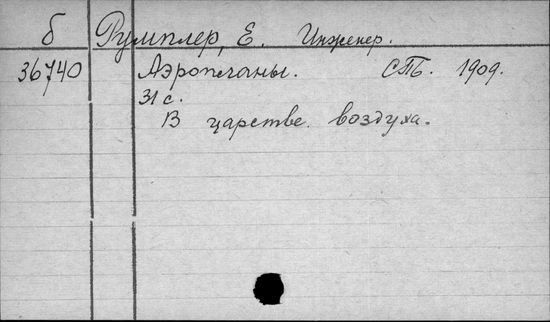 б Румплер, Е. Инженер.
36740 Аэропланы. СПб. 1909.
31 с.
В царстве воздуха.